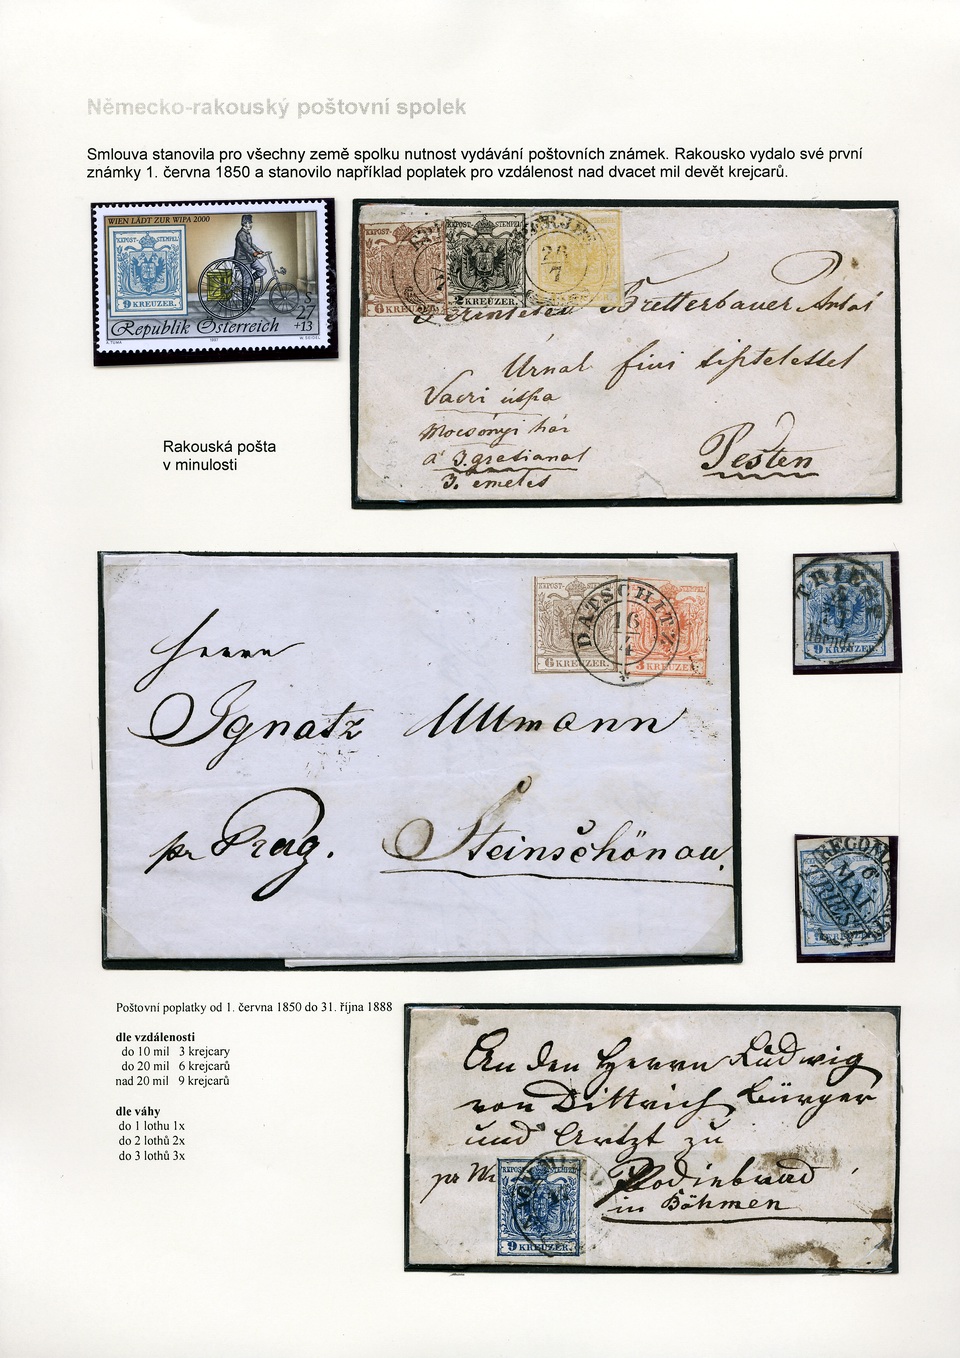 Německo-rakouský poštovní spolek
Smlouva stanovila pro všechny země spolku nutnost vydávání poštovních známek. Rakousko vydalo své první
známky 1. června 1850 a stanovilo například poplatek pro vzdálenost nad dvacet mil devět krejcarů.
WIEN LÄDT ZUR WIPA 2000
KKPOST-STEMPEL
9 KREUZER
S 27
+13
Republik Österreich
A. TUMA 1997 W. SEIDEL
Rakouská pošta
v minulosti
KKPOST-STEMPEL
6 KREUZER.
KKPOST-STEMPEL
2 KREUZER.
26
7
Bretterbauer Antal
Urnal
Vaczi
Mocsonyi ház
3. emelet
Pesten
KKPOST-STEMPEL
6 KREUZER.
3 KREUZER.
DATSCHITZ
16
4
Herrn
Ignatz Ullmann
pr Prag. Steinschönau.
TRIEST
Abends
9 KREUZER.
RECOM
6
MAI
TRIEST
Poštovní poplatky od 1. června 1850 do 31. října 1888
dle vzdálenosti
do 10 mil 3 krejcary
do 20 mil 6 krejcarů
nad 20 mil 9 krejcarů
dle váhy
do 1 lothu 1x
do 2 lothů 2x
do 3 lothů 3x
An den Herrn Ludwig
von Dittrich Bürger
und Artzt zu
Podiebrad
in Böhmen
KKPOST-STEMPEL
9 KREUZER.